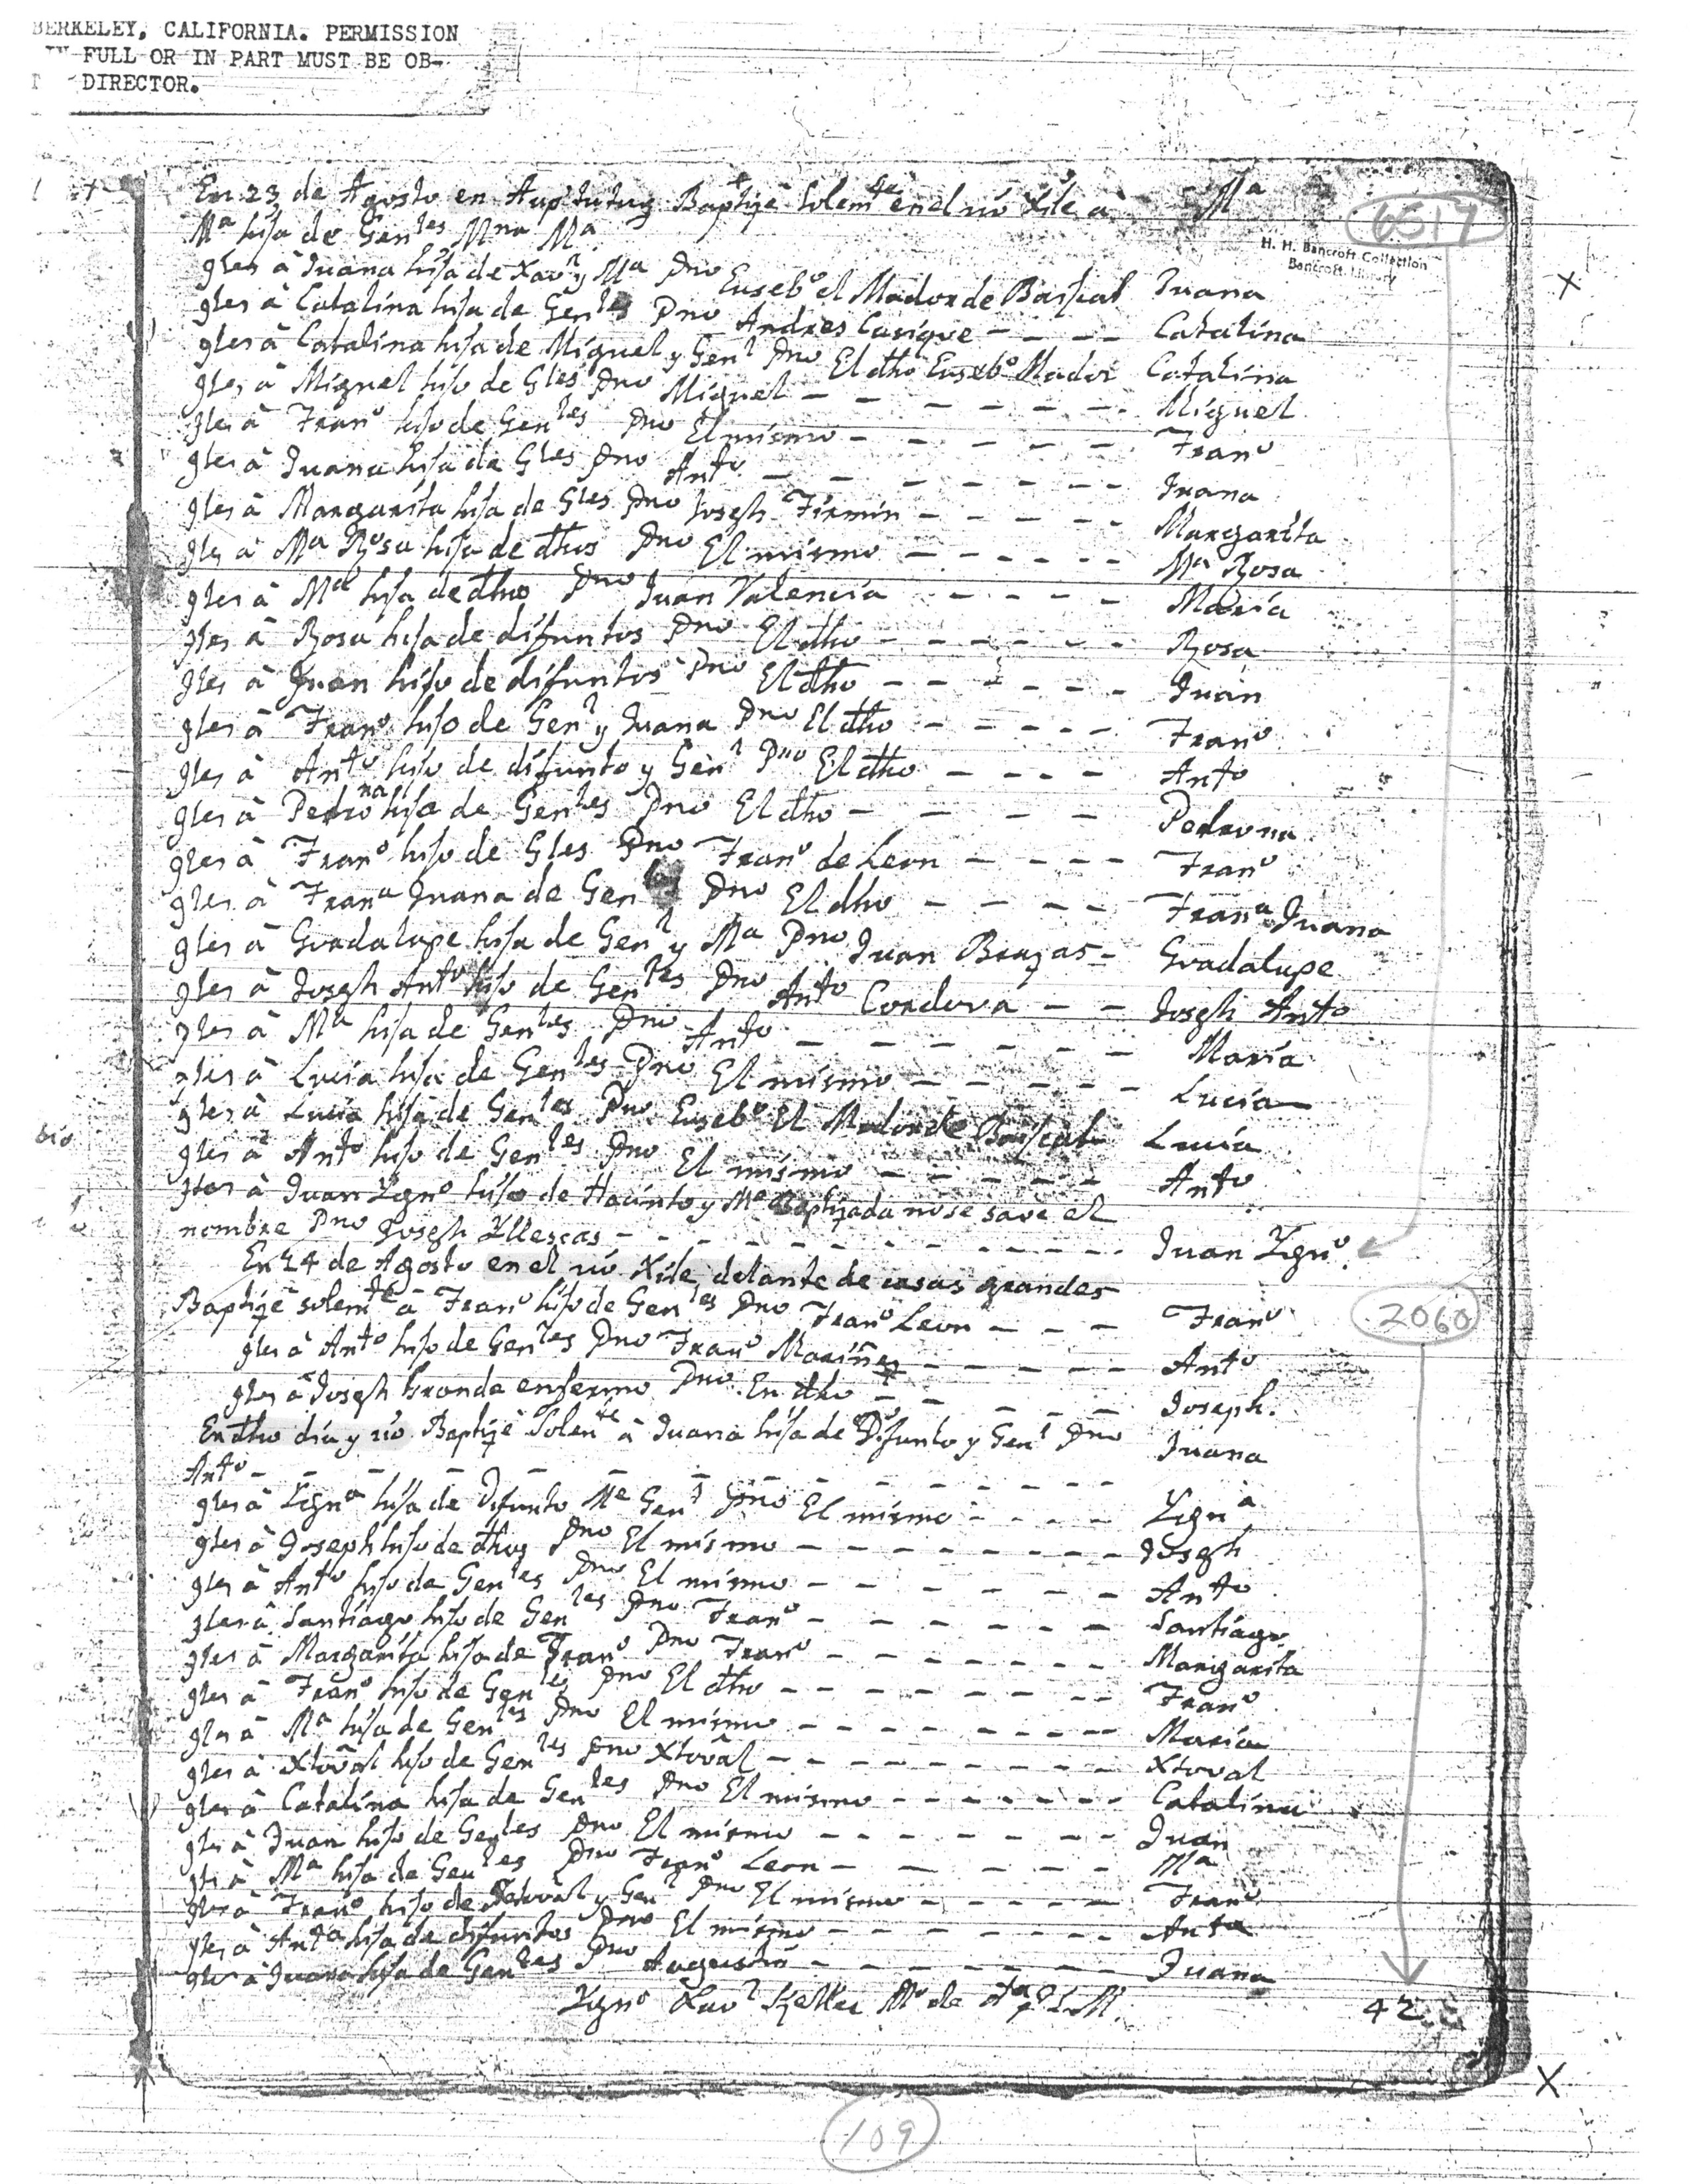 BERKELEY, CALIFORNIA. PERMISSION
FULL OR IN PART MUST BE OB-
DIRECTOR.
En 23 de Agosto en Baptizè Solemte en el rio Xile à Ma
Ma hija de Genles Mna Ma
6517
H. H. Bancroft Collection
Bancroft Library
X
à Juana hija de Xavr y Ma Pno Eusebo el Mador de Juana
à Catalina hija de Genles Pno Andres Casique - - - - Catalina
à Catalina hija de Miguel y Genl Pno El dho Eusebo Mador Catalina
à Miguel hijo de Gles Pno Miguel - - - - - - - Miguel
à Frano hijo de Genles Pno El mismo - - - - - - Frano
à Juana hija de Gles Pno Anto - - - - - - - Juana
à Margarita hija de Gles Pno Joseph Firmin - - - - - Margarita
à Ma Rosa hija de dhos Pno El mismo - - - - - - Ma Rosa
à Ma hija de dho Pno Juan Valencia - - - - - María
à Rosa hija de difuntos Pno El dho - - - - - - Rosa
à Juan hijo de difuntos Pno El dho - - - - - - Juan
à Frano hijo de Genl y Juana Pno El dho - - - - - Frano
à Anto hijo de difunto y Genl Pno El dho - - - - Anto
à Pedrona hija de Genles Pno El dho - - - - Pedrona
à Frano hijo de Gles Pno Frano de Leon - - - - Frano
à Frana Juana de Genles Pno El dho - - - - Frana Juana
à Guadalupe hija de Genl y Ma Pno Juan Brazas - Guadalupe
à Joseph Anto hijo de Genles Pno Anto Cordova - - Joseph Anto
à Ma hija de Genles Pno Anto - - - - - - María
à Lucia hija de Genles Pno El mismo - - - - - Lucia
à Lucia hija de Genles Pno Eusebo El Mador de Lucía
à Anto hijo de Genles Pno El mismo - - - - - - Anto
à Juan Ygno hijo de Hacinto y Ma Baptizada no se save el
nombre Pno Joseph Yllescas - - - - - - - - - - - Juan Ygno
En 24 de Agosto en el rio Xile, delante de casas grandes
Baptizè solemte à Frano hijo de Genles Pno Frano Leon - - - Frano
2060
à Anto hijo de Genles Pno Frano - - - - - Anto
à Joseph Granda enfermo Pno - - - - - Joseph.
En dho dia y rio Baptizè Solente à Juana hija de Difunto y Genl Pno Juana
Anto - - - - - - - - - - - -
à Ygna hija de Difunto Genl Pno El mismo - - - - Ygna
à Joseph hijo de dhos Pno El mismo - - - - - - - - Joseph
à Anto hijo de Genles Pno El mismo - - - - - - Anto
à Santiago hijo de Genles Pno Frano - - - - - - Santiago
à Margarita hija de Frano Pno Frano - - - - - - - Margarita
à Frano hijo de Genles Pno El dho - - - - - - - - Frano
à Ma hija de Genles Pno El mismo - - - - - - - - María
à Xtoval hijo de Genles Pno Xtoval - - - - - - - - Xtoval
à Catalina hija de Genles Pno El mismo - - - - - - - Catalina
à Juan hijo de Genles Pno El mismo - - - - - - - Juan
à Ma hija de Genles Pno Frano Leon - - - - - - Ma
à Frano hijo de Xtoval y Genl Pno El mismo - - - - - Frano
à Anta hija de difuntos Pno El mismo - - - - - - - Anta
à Juana hija de Genles Pno Augustin - - - - - - - Juana
Ygno Xavr Keller Mo de
42
X
109